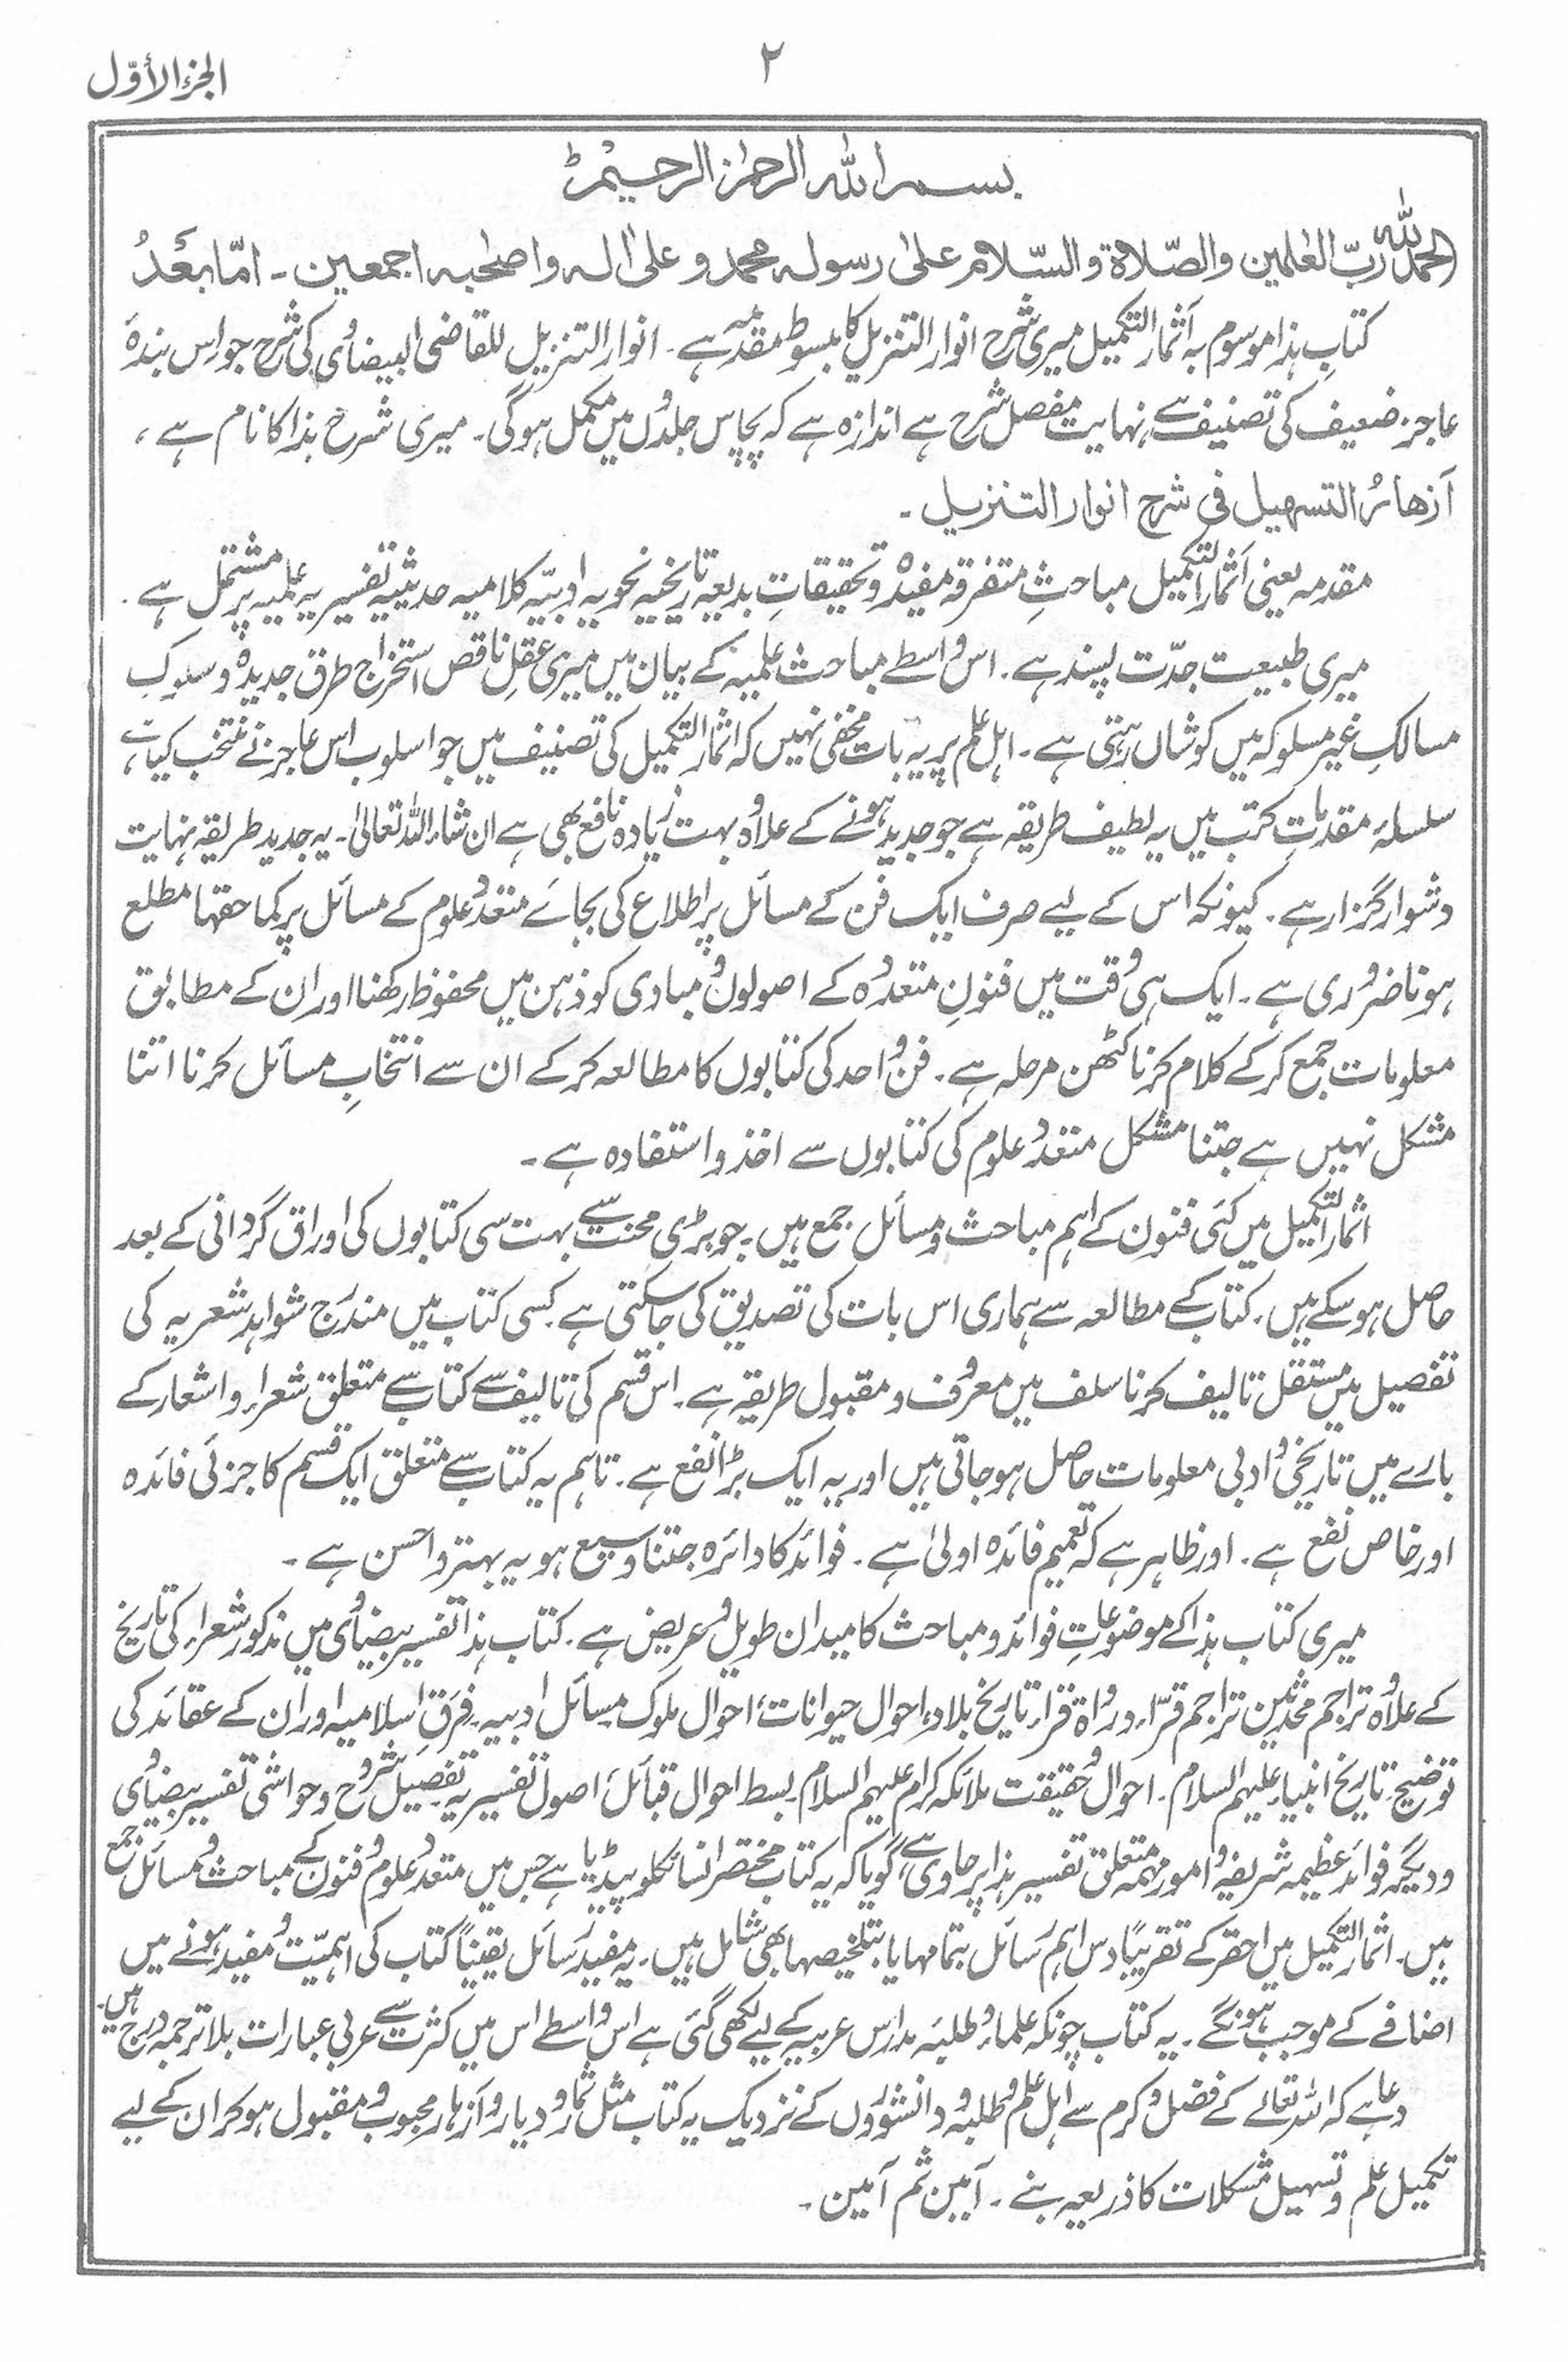 ۲
الجزء الأوّل
بسم اللہ الرحمٰن الرحیم ط
الحمد للہ ربّ العٰلمین والصّلاۃ والسّلام علیٰ رسولہ محمد و علیٰ اٰلہ واصحٰبہ اجمعین۔ امّا بعدُ
کتابِ ہذا موسوم بہ أثمار التکمیل میری شرح انوار التنزیل کا مبسوط مقدمہ ہے۔ انوار التنزیل للقاضی البیضاوی کی شرح جو اس بندۂ
عاجز ضعیف کی تصنیف ہے نہایت مفصل شرح ہے اندازہ ہے کہ پچاس جلدوں میں مکمل ہوگی۔ میری شرح ہذا کا نام ہے،
أزھارُ التسھیل فی شرح انوار التنزیل۔
مقدمہ یعنی أثمار التکمیل مباحثِ متفرقہ مفیدہ و تحقیقاتِ بدیعہ تاریخیہ نحویہ ادبیّہ کلامیہ حدیثیہ تفسیریہ علمیہ پر مشتمل ہے۔
میری طبیعت جدّت پسند ہے۔ اس واسطے مباحث علمیہ کے بیان میں میری عقلِ ناقص استخراج طرق جدیدہ و سلوکِ
مسالکِ غیر مسلوکہ میں کوشاں رہتی ہے۔ اہل علم پر یہ بات مخفی نہیں کہ اثمار التکمیل کی تصنیف میں جو اسلوب اس عاجز نے منتخب کیا ہے
سلسلۂ مقدماتِ کتب میں یہ لطیف طریقہ ہے جو جدید ہونے کے علاوہ بہت زیادہ نافع بھی ہے ان شاء اللہ تعالیٰ۔ یہ جدید طریقہ نہایت
دشوار گزار ہے۔ کیونکہ اس کے لیے صرف ایک فن کے مسائل پر اطلاع کی بجائے متعدد علوم کے مسائل پر کما حقہا مطلع
ہونا ضروری ہے۔ ایک ہی وقت میں فنونِ متعددہ کے اصولوں و مبادی کو ذہن میں محفوظ رکھنا اور ان کے مطابق
معلومات جمع کرکے کلام کرنا کٹھن مرحلہ ہے۔ فن واحد کی کتابوں کا مطالعہ کرکے ان سے انتخابِ مسائل کرنا اتنا
مشکل نہیں ہے جتنا مشکل متعدد علوم کی کتابوں سے اخذ و استفادہ ہے۔
اثمار التکمیل میں کئی فنون کے اہم مباحث و مسائل جمع ہیں۔ جو بڑی محنت سے بہت سی کتابوں کی اوراق گردانی کے بعد
حاصل ہوسکے ہیں۔ کتاب کے مطالعہ سے ہماری اس بات کی تصدیق کی جاسکتی ہے۔ کسی کتاب میں مندرج شواہد شعریہ کی
تفصیل میں مستقل تالیف کرنا سلف میں معروف و مقبول طریقہ ہے۔ اس قسم کی تالیف سے کتاب سے متعلق شعراء و اشعار کے
بارے میں تاریخی و ادبی معلومات حاصل ہو جاتی ہیں اور یہ ایک بڑا نفع ہے۔ تاہم یہ کتاب سے متعلق ایک قسم کا جزئی فائدہ
اور خاص نفع ہے۔ اور ظاہر ہے کہ تعمیم فائدہ اولیٰ ہے۔ فوائد کا دائرہ جتنا وسیع ہو یہ بہتر و احسن ہے۔
میری کتاب ہذا کے موضوعاتِ فوائد و مباحث کا میدان طویل و عریض ہے۔ کتاب ہذا تفسیر بیضاوی میں مذکور شعراء کی تاریخ
کے علاوہ تراجم محدثین تراجم قرّاء و رواۃ قراء، تاریخ بلاد، احوال حیوانات، احوال ملوک مسائل ادبیہ۔ فِرَقِ اسلامیہ اور ان کے عقائد کی
توضیح۔ تاریخ انبیاء علیہم السلام۔ احوال و حقیقت ملائکہ کرام علیہم السلام۔ بسط احوال قبائل۔ اصول تفسیریہ تفصیل شروح و حواشی تفسیر بیضاوی
و دیگر فوائد عظیمہ شریفہ و امور مہمہ متعلق تفسیر ہذا پر حاوی ہے، گویا کہ یہ کتاب مختصر انسائکلوپیڈیا ہے جس میں متعدد علوم و فنون کے مباحث و مسائل جمع
ہیں۔ اثمار التکمیل میں احقر کے تقریباً دس اہم رسائل بتمامہا یا بتلخیصہا بھی شامل ہیں۔ یہ مفید رسائل یقیناً کتاب کی اہمیّت و مفید ہونے میں
اضافے کے موجب ہونگے۔ یہ کتاب چونکہ علماء و طلبہ مدارس عربیہ کے لیے لکھی گئی ہے اس واسطے اس میں کثرت سے عربی عبارات بلا ترجمہ درج ہیں۔
دعا ہے کہ اللہ تعالے کے فضل و کرم سے اہل علم و طلبہ و دانشوروں کے نزدیک یہ کتاب مثل ثمار و دیار و أزہار محبوب و مقبول ہوکر ان کے لیے
تکمیل علم و تسہیل مشکلات کا ذریعہ بنے۔ آمین ثم آمین۔